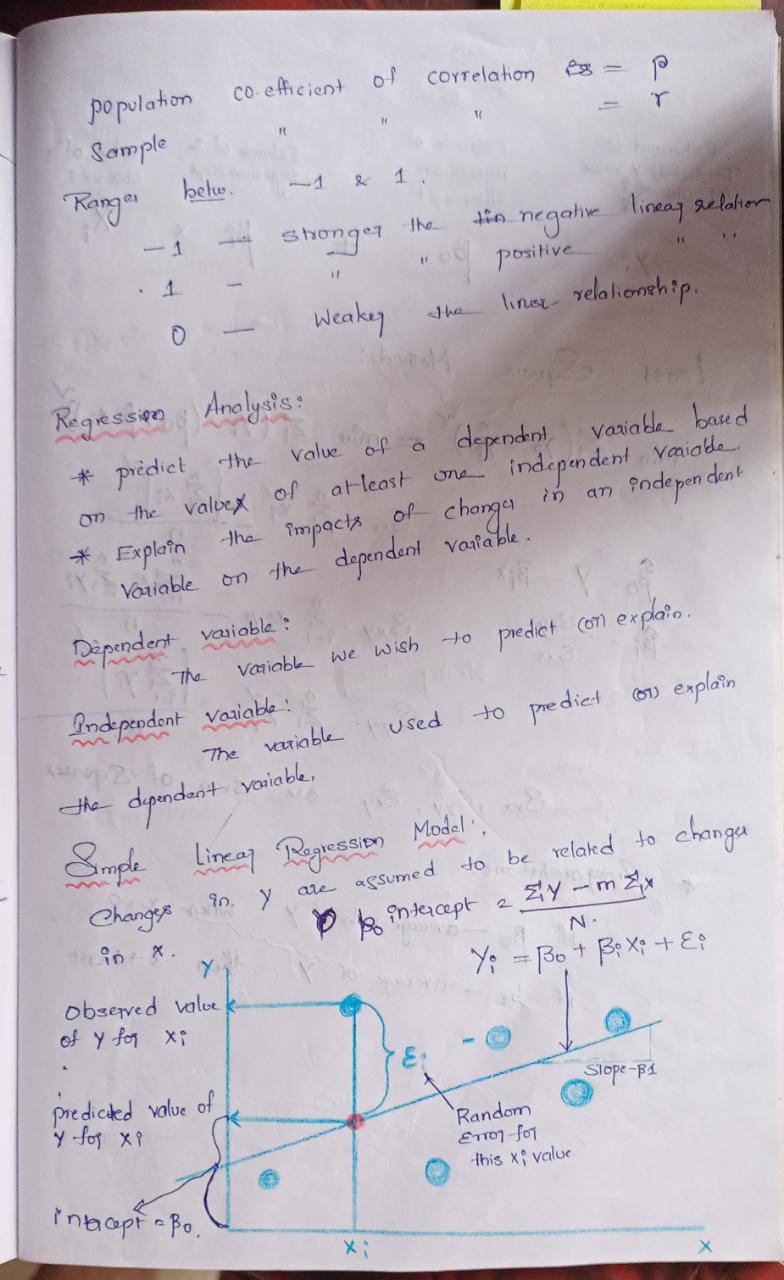 population co-efficient of correlation = ρ
Sample " " " = r
Ranges betw. -1 & 1.
-1 — stronger the negative linear relation
1 — " " positive " "
0 — Weaker the linear relationship.
Regression Analysis:
* predict the value of a dependent variable based
on the values of atleast one independent variable.
* Explain the impacts of changes in an independent
variable on the dependent variable.
Dependent variable:
The variable we wish to predict (or) explain.
Independent variable:
The variable used to predict (or) explain
the dependent variable.
Simple Linear Regression Model:
Changes in y are assumed to be related to changes
in x.
β0 intercept = ΣY - m Σx / N.
Yi = β0 + βi Xi + Ei
Y
Observed value
of Y for Xi
Ei
Slope-β1
predicted value of
Y for Xi
Random
Error for
this Xi value
intercept = β0.
Xi
X